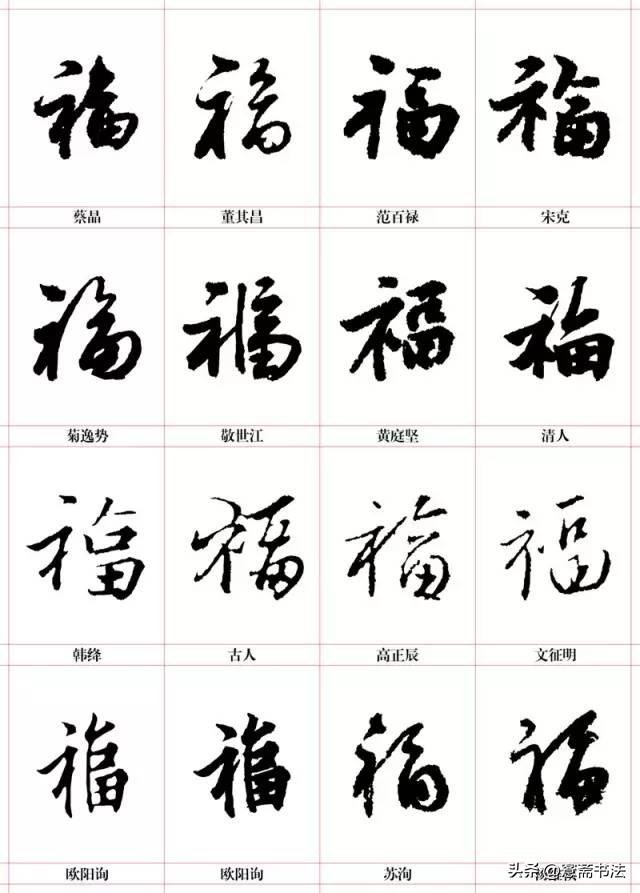 福 福 福 福
蔡晶 董其昌 范百禄 宋克
福 福 福 福
菊逸势 敬世江 黄庭坚 清人
福 福 福 福
韩绛 古人 高正辰 文征明
福 福 福 福
欧阳询 欧阳询 苏洵
头条 @寰斋书法